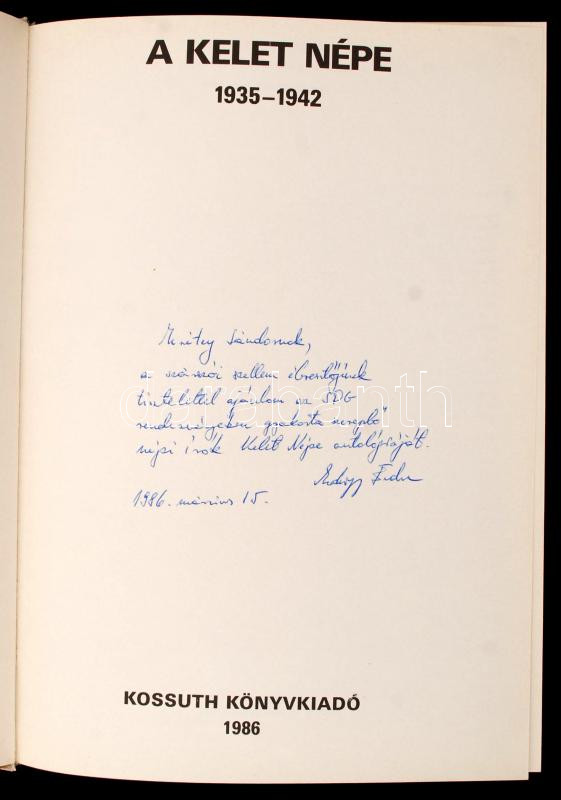 A KELET NÉPE
1935–1942
Sándornak,
a szárszói szellem ébresztőjének
tisztelettel ajánlom az SDG
rendezvényeken gyakorta szereplő
népi írók Kelet Népe antológiáját.
1986. március 15.
KOSSUTH KÖNYVKIADÓ
1986
darabanth